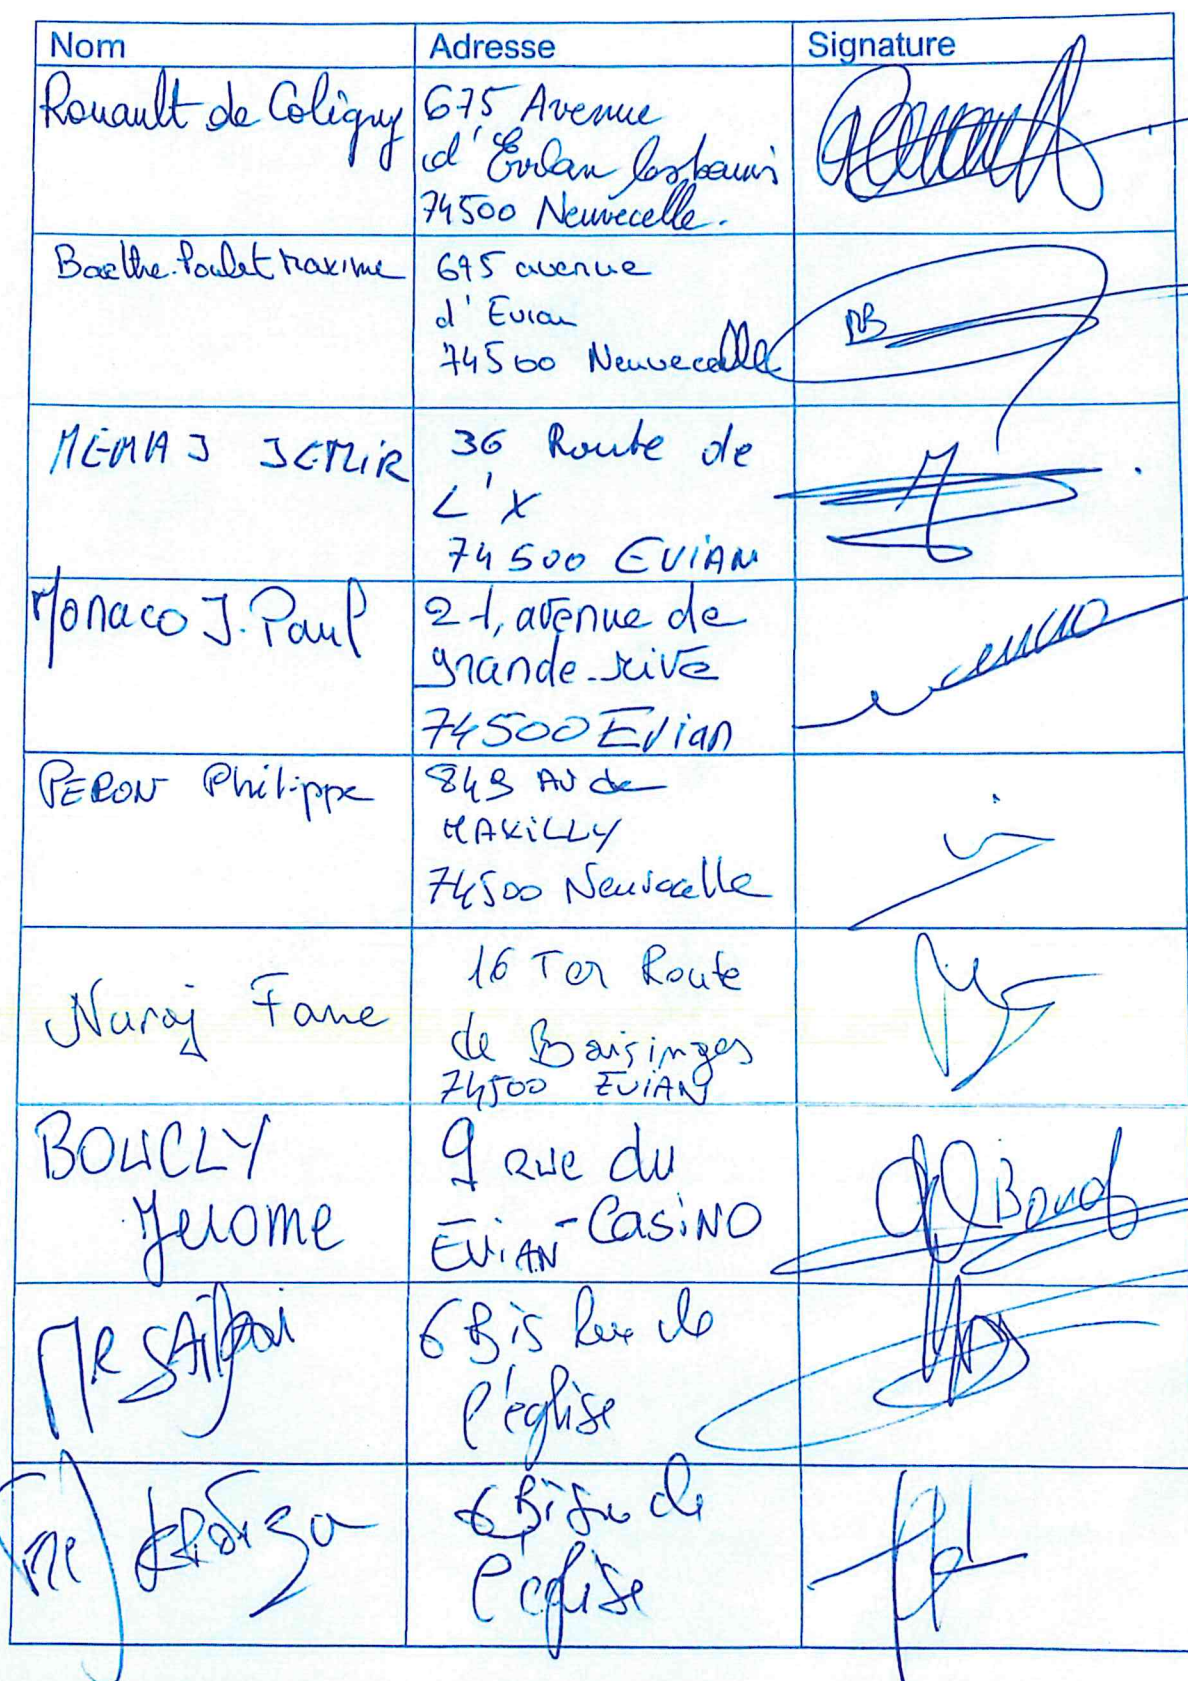 Nom
Adresse
Signature
Rouault de Coligny
675 Avenue
d'Evian les bains
74500 Neuvecelle.
Barthe-Poulet Maxime
695 avenue
d'Evian
74500 Neuvecelle
MB
MEMAJ JEMIR
36 Route de
L'X
74500 EVIAN
Monaco J. Paul
21, avenue de
grande-rive
74500 Evian
PERON Philippe
849 AV de
MAXILLY
74500 Neuvecelle
Nuraj Fane
16 Ter Route
de Baisinges
74500 EVIAN
BOUCLY
Jerome
9 rue du
EVIAN - CASINO
MR
6 Bis Rue de
l'église
Me
6 Bis rue de
l'église